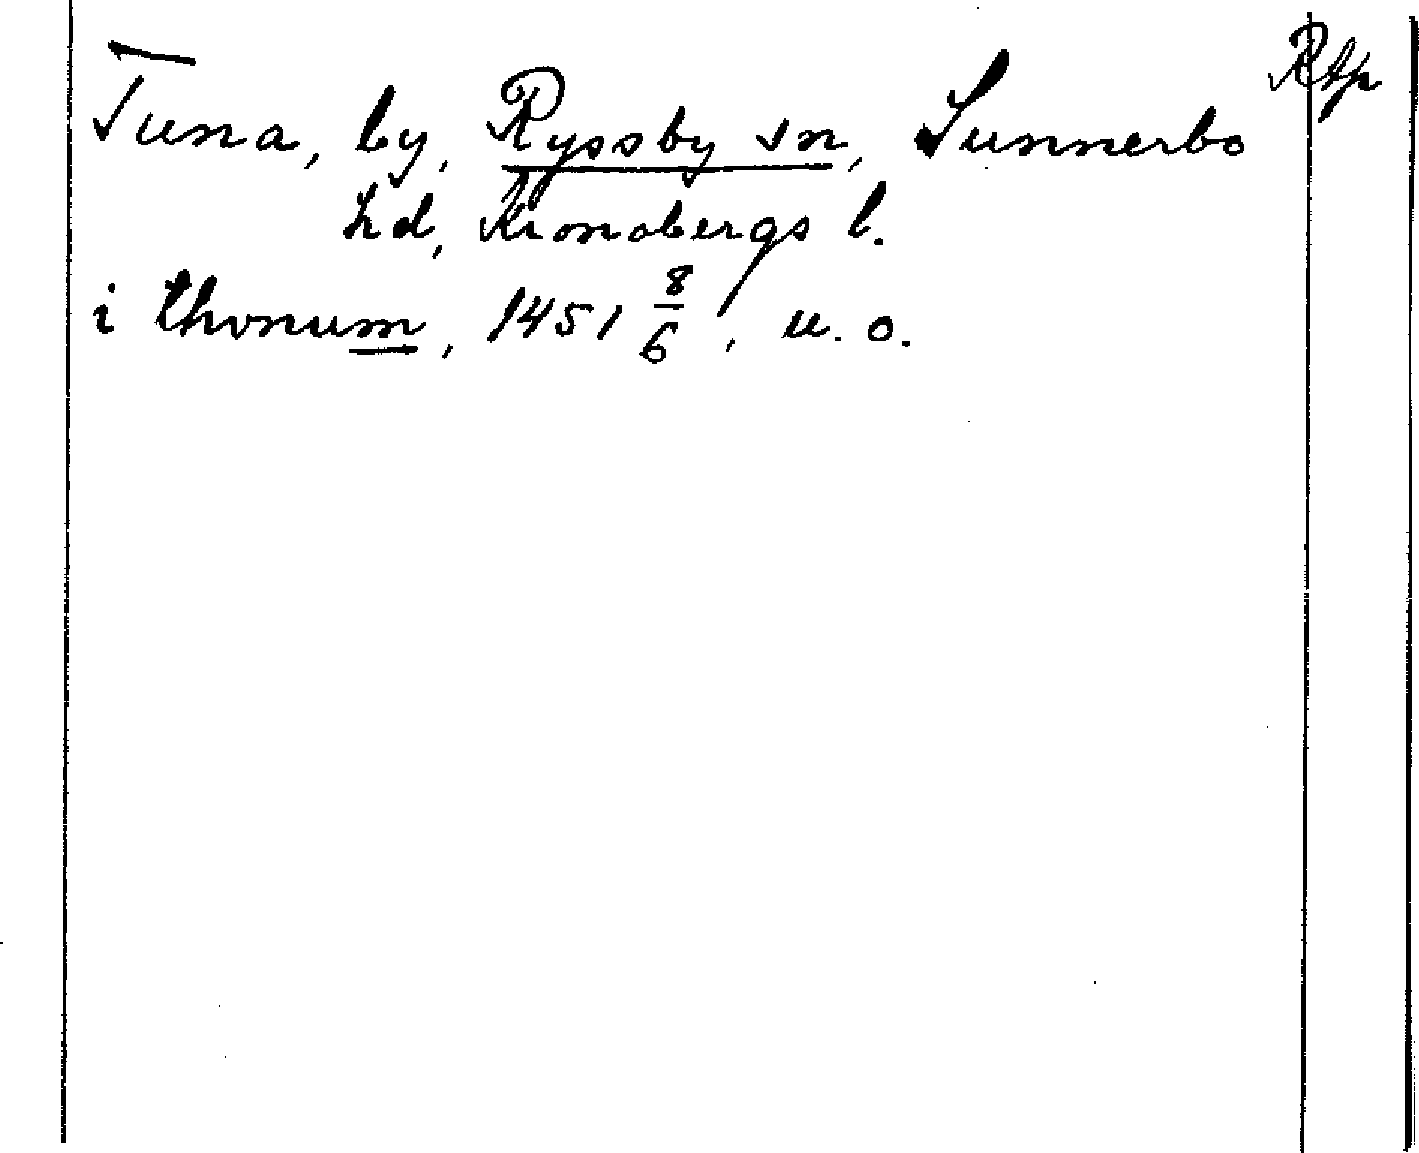 Rtp
Tuna, by, Ryssby sn, Sunnerbo
hd, Kronobergs l.
i thvnum, 1451 8/6, u. o.